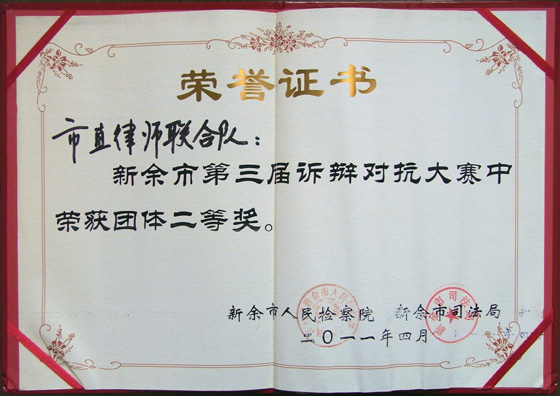 荣誉证书
市直律师联合队：
新余市第三届诉辩对抗大赛中
荣获团体二等奖。
新余市人民检察院 新余市司法局
二〇一一年四月